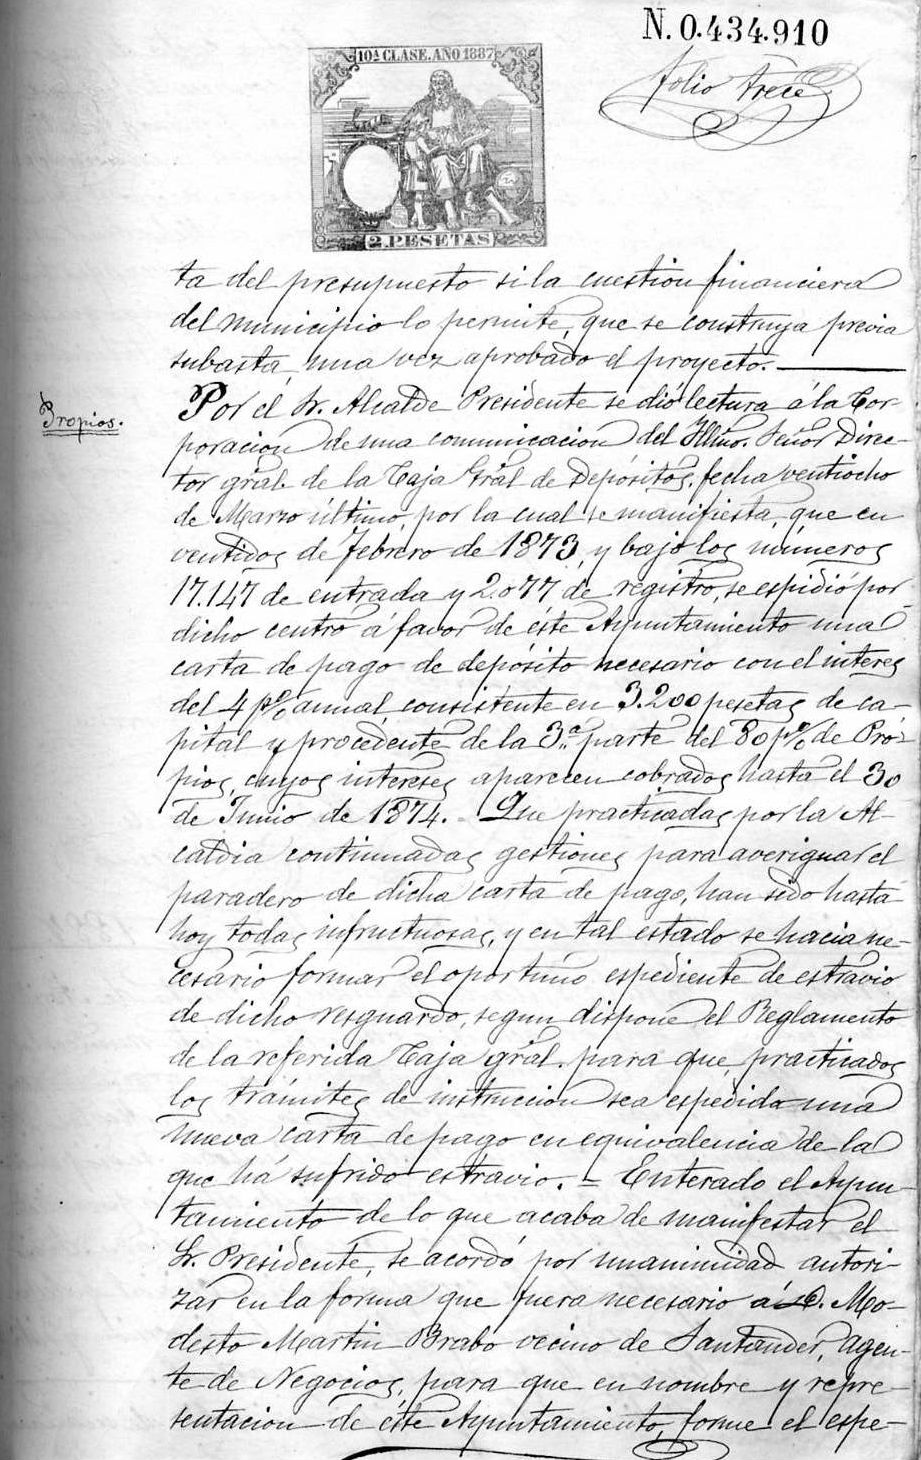 N. 0.434.910
10ª CLASE. AÑO 1887
folio trece
2. PESETAS
ta del presupuesto si la cuestion financiera
del municipio lo permite, que se construya previa
subasta una vez aprobado el proyecto.
Propios.
Por el Sr. Alcalde Presidente se dió lectura á la Cor-
poracion de una comunicacion del Illmo. Señor Direc-
tor gral. de la Caja Gral de Depósitos, fecha ventiocho
de Marzo último, por la cual se manifiesta, que en
ventidos de Febrero de 1873, y bajo los números
17.147 de entrada y 2.077 de registro, se espidió por
dicho centro á favor de éste Ayuntamiento una
carta de pago de depósito necesario con el interes
del 4 p% annual, consistente en 3.200 pesetas de ca-
pital y procedente de la 3.ª parte del 80 p% de Pro-
pios, cuyos intereses aparecen cobrados hasta el 30
de Junio de 1874. = Que practicadas por la Al-
caldia continuadas gestiones para averiguar el
paradero de dicha carta de pago, han sido hasta
hoy todas infructuosas, y en tal estado se hacia ne-
cesario formar el oportuno espediente de estravio
de dicho resguardo, segun dispone el Reglamento
de la referida Caja gral. para que, practicados
los trámites de instruccion sea espedida una
nueva carta de pago en equivalencia de la
que há sufrido estravio. = Enterado el Ayun-
tamiento de lo que acaba de manifestar el
Sr. Presidente, se acordó por unanimidad autori-
zar en la forma que fuera necesario á D. Mo-
desto Martin Brabo vecino de Santander, Agen-
te de Negocios, para que en nombre y repre-
sentacion de éste Ayuntamiento, forme el espe-